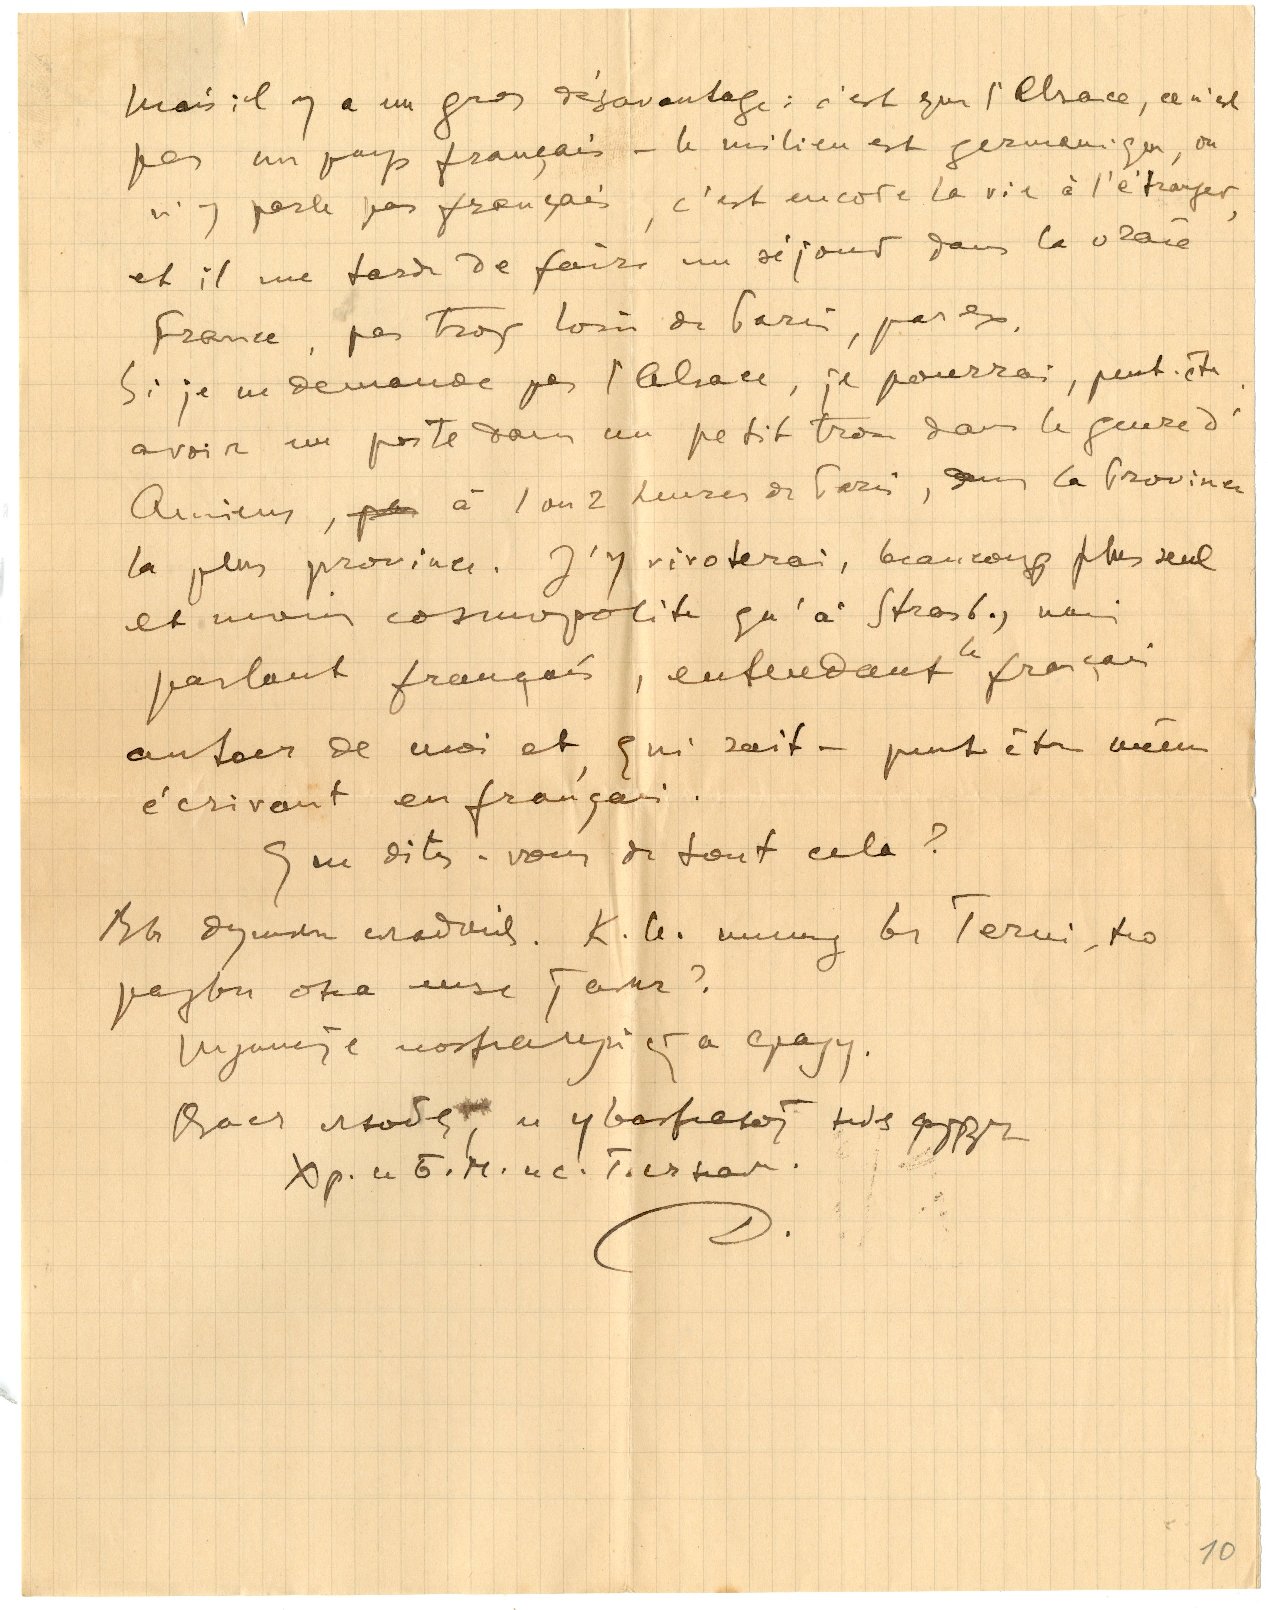 Mais il y a un gros désavantage : c'est que l'Alsace, ce n'est
pas un pays français – le milieu est germanique, on
n'y parle pas français, c'est encore la vie à l'étranger,
et il me tarde de faire un séjour dans la vraie
France, pas trop loin de Paris, par ex.
Si je ne demande pas l'Alsace, je pourrai, peut-être
avoir un poste dans un petit trou dans le genre d'
Amiens, pas à 1 ou 2 heures de Paris, dans la Province
la plus province. J'y vivoterai, beaucoup plus seul
et moins cosmopolite qu'à Strasb., mais
parlant français, entendant le français
autour de moi et, qui sait – peut être même
écrivant en français.
Que dites-vous de tout cela ?
К. И. въ Terni, но
развѣ она еще тамъ?
сразу.
Васъ и
Хр. и Б. М. и с.
D.
10